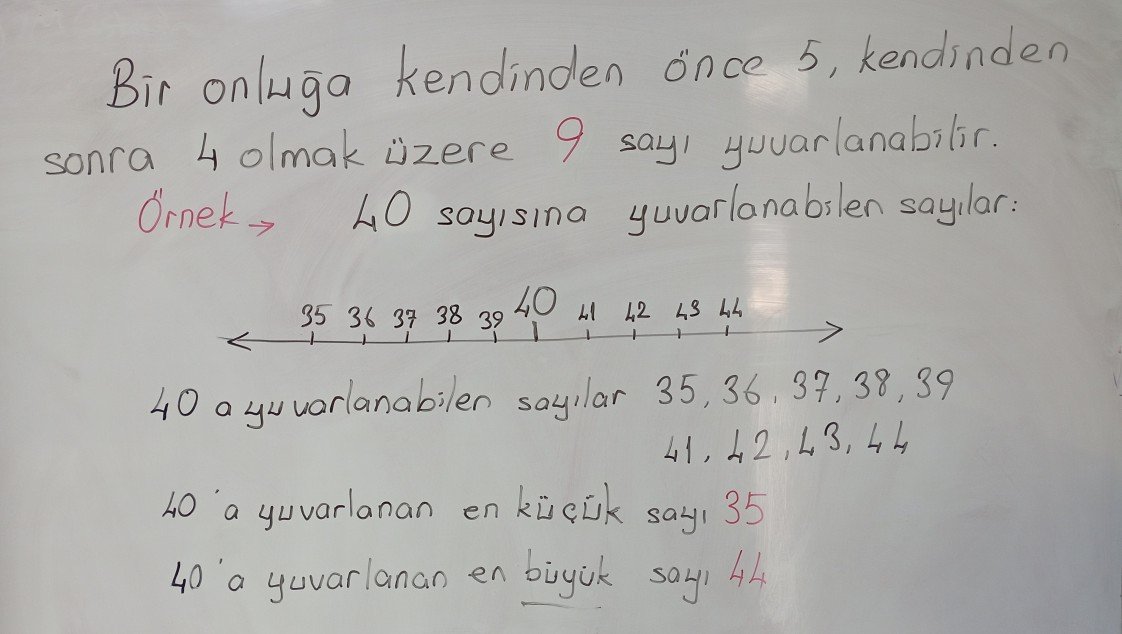 Bir onluğa kendinden önce 5, kendinden
sonra 4 olmak üzere 9 sayı yuvarlanabilir.
Örnek → 40 sayısına yuvarlanabilen sayılar:
35 36 37 38 39 40 41 42 43 44
40 a yuvarlanabilen sayılar 35, 36, 37, 38, 39
41, 42, 43, 44
40'a yuvarlanan en küçük sayı 35
40'a yuvarlanan en büyük sayı 44